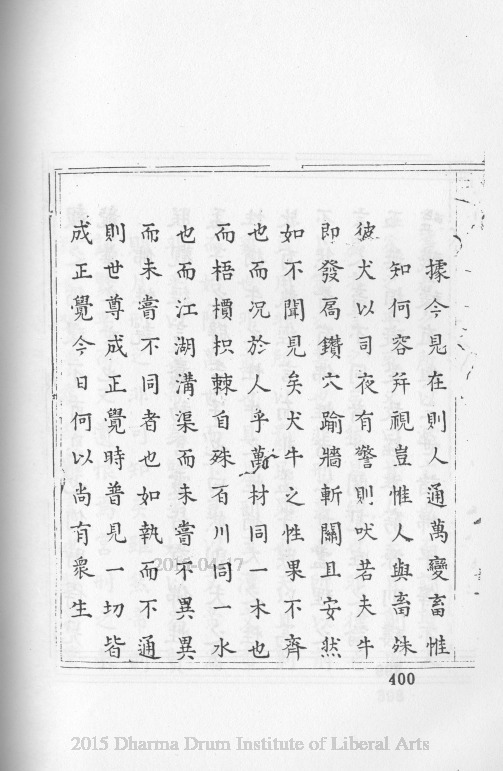 據今見在則人通萬變畜惟
知何容并視豈惟人與畜殊
彼犬以司夜有警則吠若夫牛
即發扃鑽穴踰牆斬關且安然
如不聞見矣犬牛之性果不齊
也而況於人乎萬材同一木也
而梧檟枳棘自殊百川同一水
也而江湖溝渠而未嘗不異異
而未嘗不同者也如執而不通
則世尊成正覺時普見一切皆
成正覺今日何以尚有眾生
400
2015-04-17
2015 Dharma Drum Institute of Liberal Arts